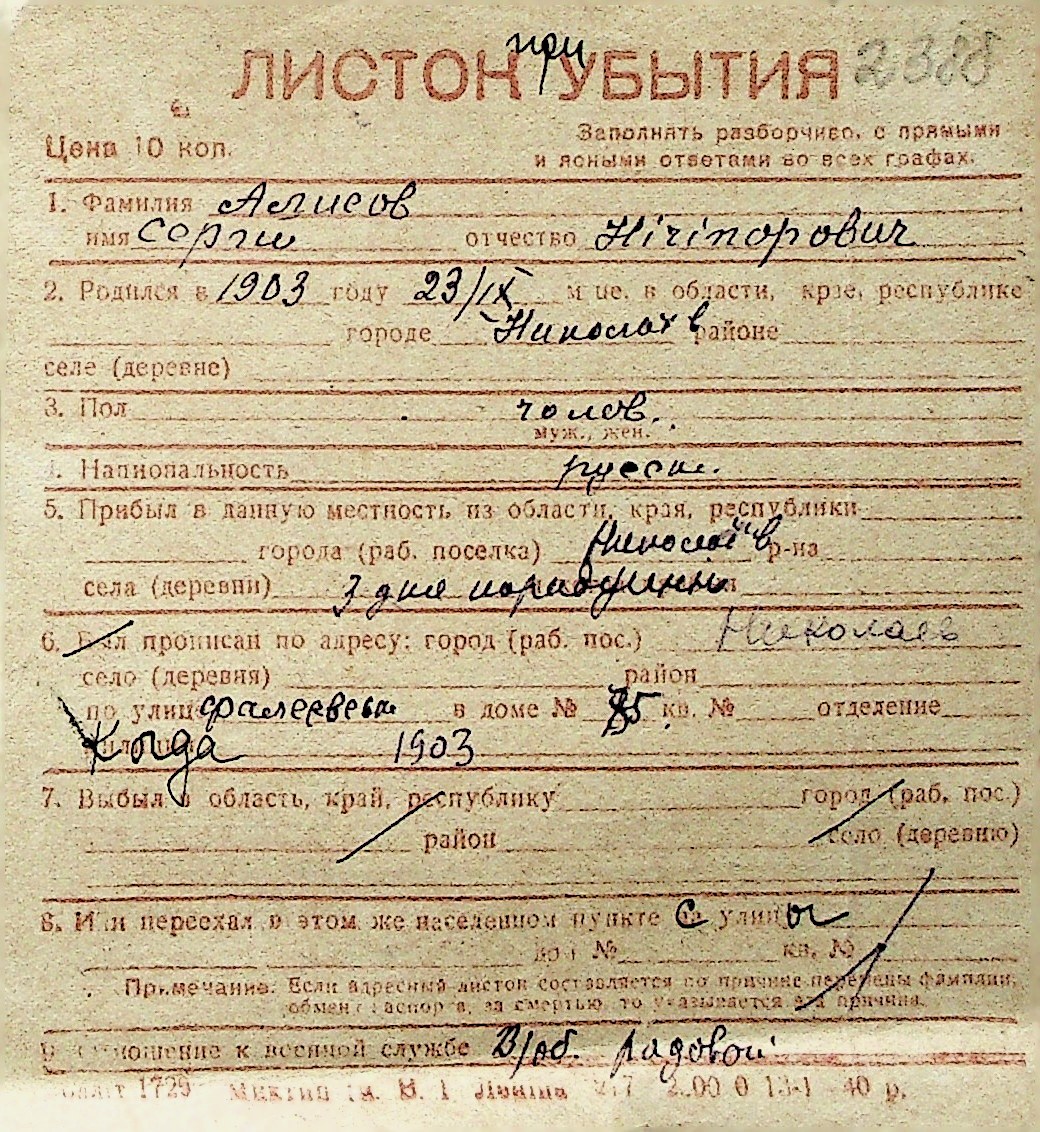 при
ЛИСТОК УБЫТИЯ 2388
Цена 10 коп.
Заполнять разборчиво, с прямыми
и ясными ответами во всех графах.
1. Фамилия Алисов
имя Сергій отчество Нічіпорович
2. Родился в 1903 году 23/IX м-це, в области, крае, республике
городе Николаев районе
селе (деревне)
3. Пол чолов.
муж., жен.
4. Национальность русск.
5. Прибыл в данную местность из области, края, республики
города (раб. поселка) Николаїв р-на
села (деревни) 3 дня
6. Был прописан по адресу: город (раб. пос.) Николаев
село (деревня) район
по улице Фалеевськ в доме № 35 кв. № отделение
милиции Когда 1903
7. Выбыл в область, край, республику город (раб. пос.)
район село (деревню)
8. Или переехал в этом же населенном пункте с улицы
дом № кв. №
Примечание. Если адресный листок составляется по причине перемены фамилии,
обмена паспорта, за смертью, то указывается эта причина.
9. Отношение к военной службе В/об. радовой
1729 В. І. Леніна 2.00 0 13-1 -40 р.